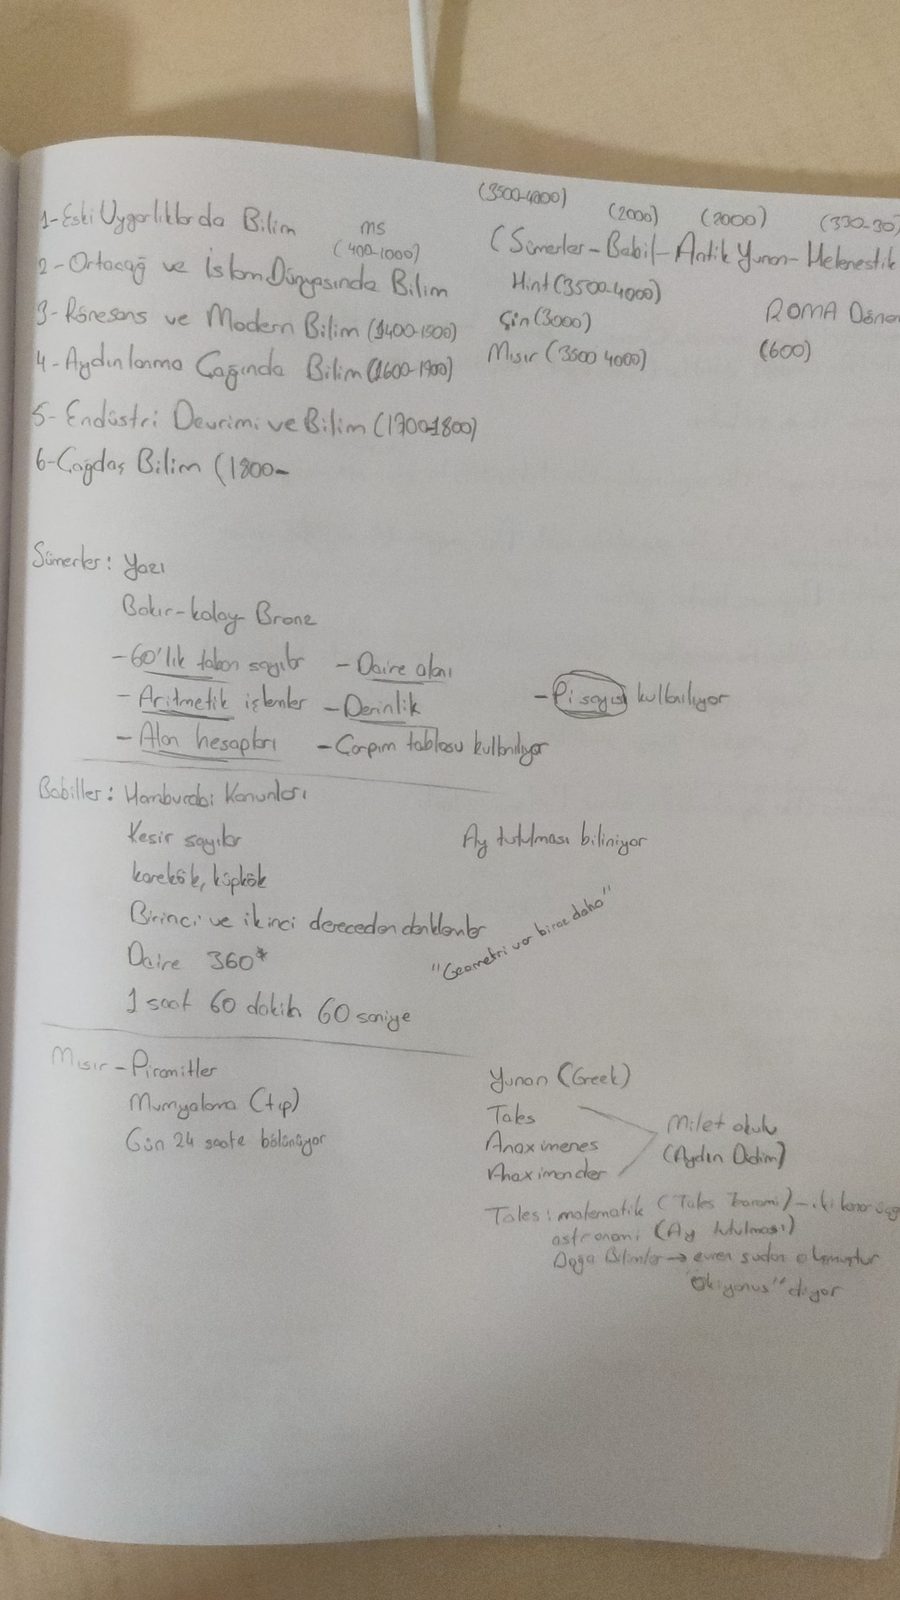 (3500-4000)
1-Eski Uygarlıklarda Bilim
(2000) (2000) (330-30)
MS
(400-1000)
(Sümerler-Babil-Antik Yunan-Helenestik
2-Ortaçağ ve İslam Dünyasında Bilim
Hint (3500-4000)
3-Rönesans ve Modern Bilim (1400-1500)
Çin (3000)
ROMA Döne
4-Aydınlanma Çağında Bilim (1600-1900)
Mısır (3500 4000)
(600)
5-Endüstri Devrimi ve Bilim (1700-1800)
6-Çağdaş Bilim (1800-
Sümerler: Yazı
Bakır-kalay Bronz
-60'lık taban sayılar -Daire alanı
-Aritmetik işlemler -Derinlik -Pi sayısı kullanılıyor
-Alan hesapları -Çarpım tablosu kullanılıyor
Babiller: Hamburabi Kanunları
Kesir sayılar Ay tutulması biliniyor
karekök, küpkök
Birinci ve ikinci dereceden denklemler
"Geometri var biraz daha"
Daire 360°
1 saat 60 dakika 60 saniye
Mısır-Piramitler
Mumyalama (tıp)
Gün 24 saate bölünüyor
Yunan (Greek)
Tales
Milet okulu
Anaximenes
(Aydın Didim)
Anaximander
Tales: matematik (Tales Teoremi)-iki kenar üçg
astronomi (Ay tutulması)
Doğa Bilimler → evren sudan oluşmuştur
"Okyonus" diyor